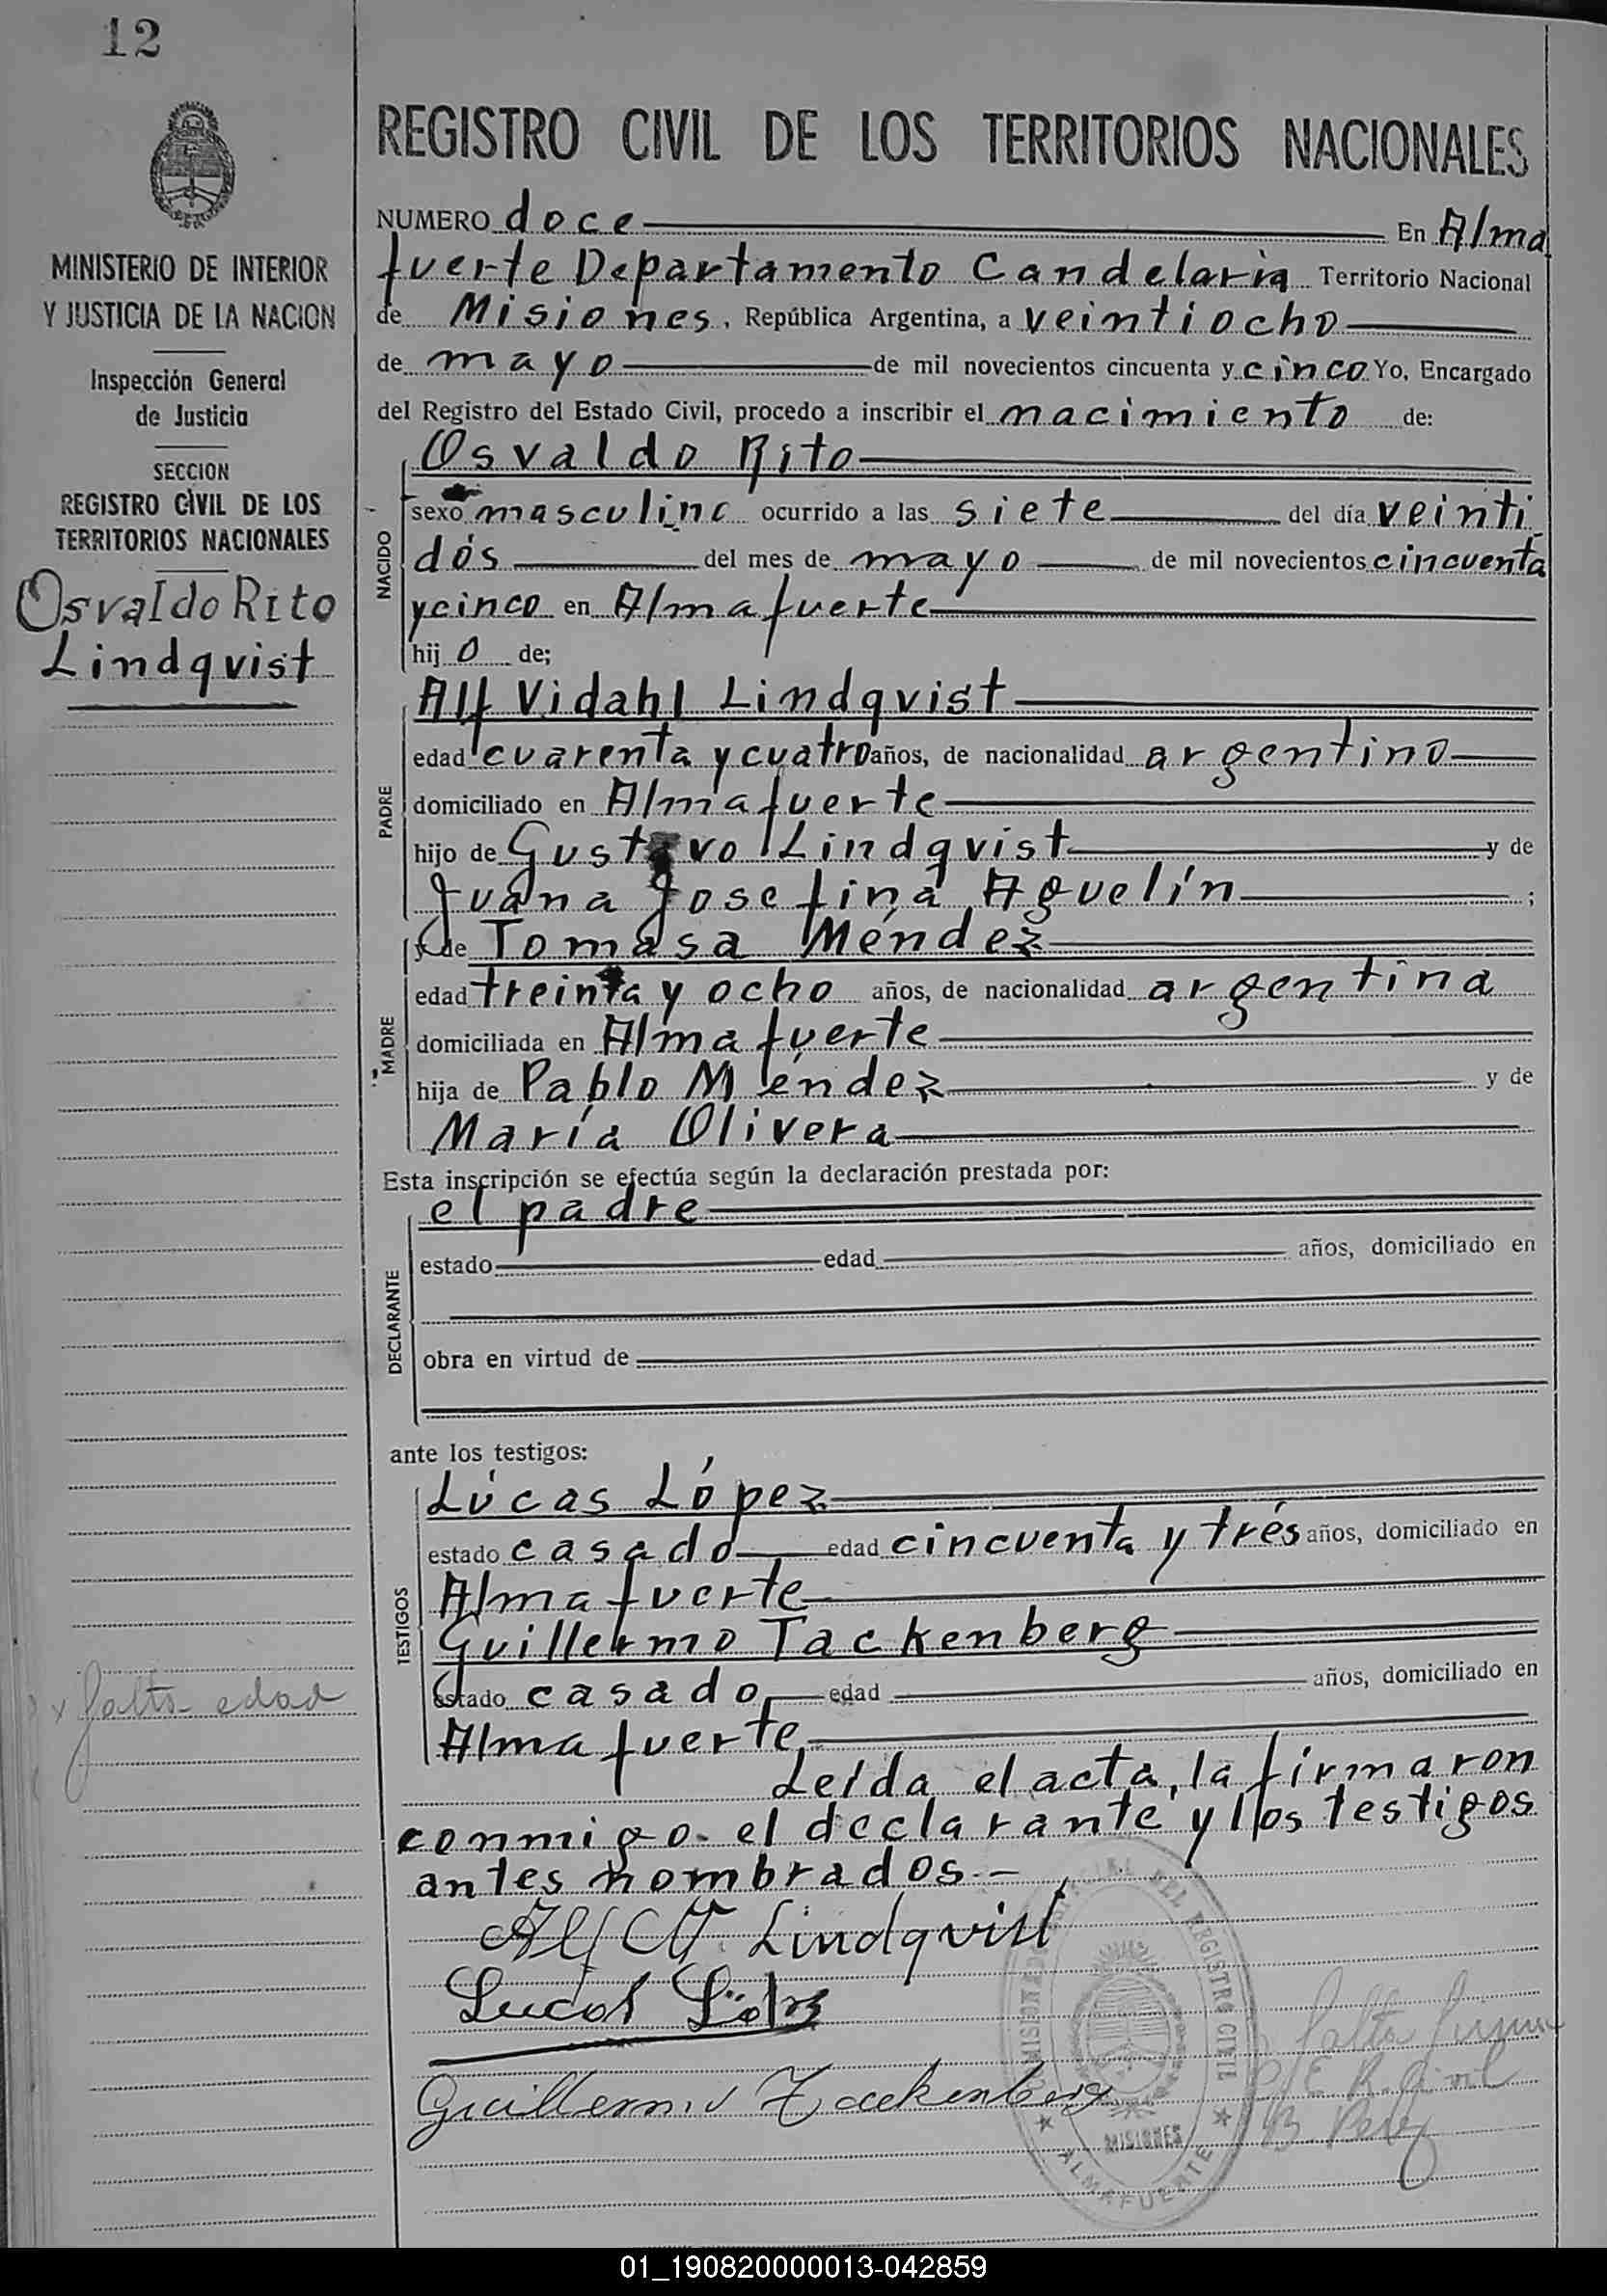 12
MINISTERIO DE INTERIOR
Y JUSTICIA DE LA NACION
Inspección General
de Justicia
SECCION
REGISTRO CIVIL DE LOS
TERRITORIOS NACIONALES
Osvaldo Rito
Lindqvist
falta edad
REGISTRO CIVIL DE LOS TERRITORIOS NACIONALES
NUMERO doce En Alma
fuerte Departamento Candelaria Territorio Nacional
de Misiones, República Argentina, a veintiocho
de mayo de mil novecientos cincuenta y cinco Yo, Encargado
del Registro del Estado Civil, procedo a inscribir el nacimiento de:
Osvaldo Rito
NACIDO
sexo masculino ocurrido a las siete del día veinti
dós del mes de mayo de mil novecientos cincuenta
y cinco en Almafuerte
hijo de;
PADRE
Alf Vidahl Lindqvist
edad cuarenta y cuatro años, de nacionalidad argentino
domiciliado en Almafuerte
hijo de Gustavo Lindqvist y de
Juana Josefina Aguelín ;
MADRE
y de Tomasa Méndez
edad treinta y ocho años, de nacionalidad argentina
domiciliada en Almafuerte
hija de Pablo Méndez y de
María Olivera
Esta inscripción se efectúa según la declaración prestada por:
DECLARANTE
el padre
estado edad años, domiciliado en
obra en virtud de
ante los testigos:
TESTIGOS
Lúcas López
estado casado edad cincuenta y trés años, domiciliado en
Almafuerte
Guillermo Tackenberg
estado casado edad años, domiciliado en
Almafuerte
Leída el acta, la firmaron
conmigo el declarante y los testigos
antes nombrados.-
Lindqvist
Lucas
Guillermo Tackenberg
DEL REGISTRO CIVIL
MISIONES
★ ALMAFUERTE ★
falta firma
01_190820000013-042859